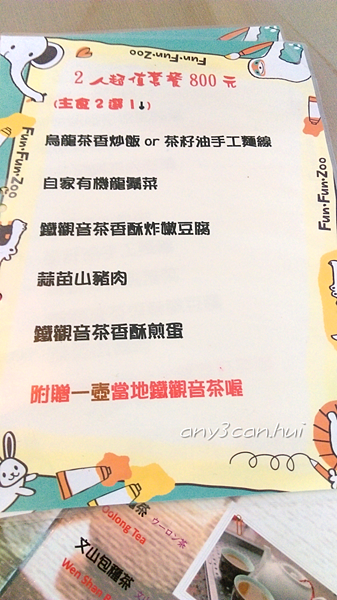 Fun·Fun·Zoo
2人超值套餐800元
(主食2選1↓)
烏龍茶香炒飯or茶籽油手工麵線
自家有機龍鬚菜
鐵觀音茶香酥炸嫩豆腐
蒜苗山豬肉
鐵觀音茶香酥煎蛋
附贈一壺當地鐵觀音茶喔
Fun·Fun·Zoo
Fun·Fun·Zoo
any3can.hui
龍茶
Oolong Tea
ウーロン茶
文山包種茶
Wen Shan